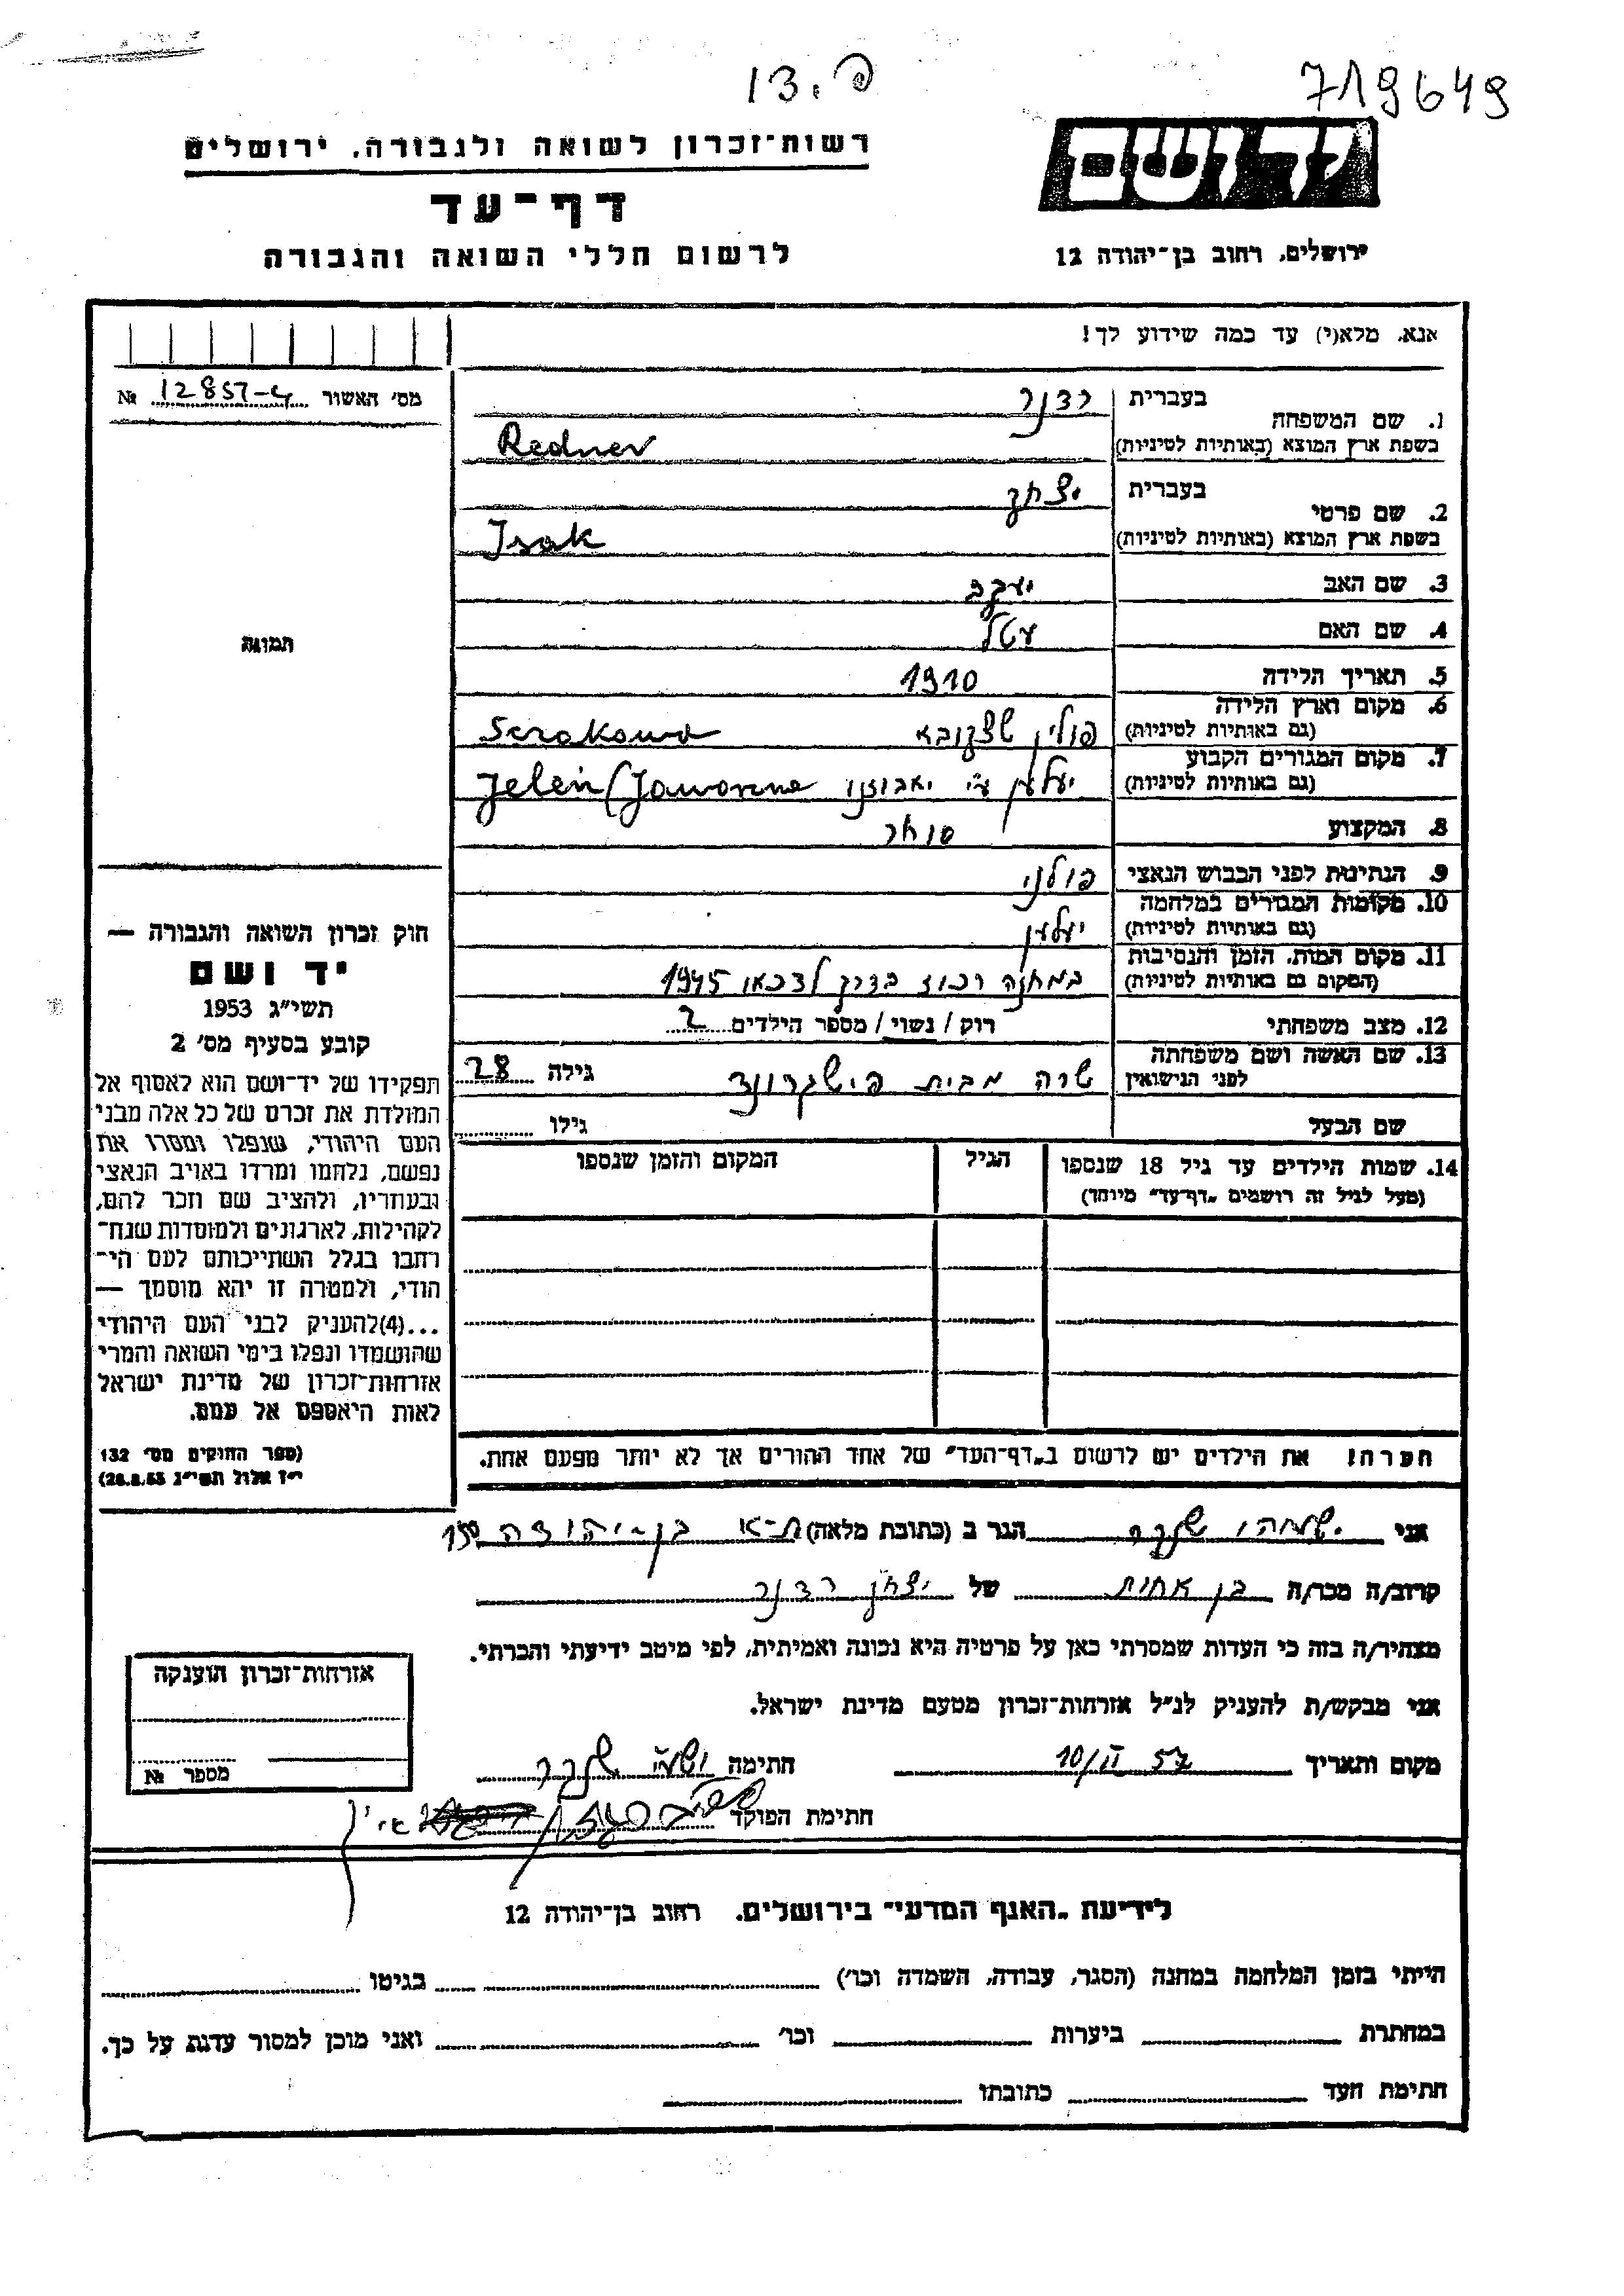 פ. 13
719649
יד ושם
רשות־זכרון לשואה ולגבורה, ירושלים
דף־עד
לרשום חללי השואה והגבורה
ירושלים, רחוב בן־יהודה 12
אנא, מלא(י) עד כמה שידוע לך!
מס' האשור 12857-4 №
1. שם המשפחה בעברית רדנר
בשפת ארץ המוצא (באותיות לטיניות) Redner
2. שם פרטי בעברית יצחק
בשפת ארץ המוצא (באותיות לטיניות) Isak
3. שם האב יעקב
4. שם האם עטל
5. תאריך הלידה 1910
6. מקום וארץ הלידה (גם באותיות לטיניות) פולין שצקובא Sczakowa
7. מקום המגורים הקבוע (גם באותיות לטיניות) יעלען ע"י יאבוזנו Jeleń/Jaworzno
8. המקצוע סוחר
9. הנתינות לפני הכבוש הנאצי פולני
10. מקומות המגורים במלחמה (גם באותיות לטיניות) יעלען
11. מקום המות, הזמן והנסיבות (המקום גם באותיות לטיניות) במחנה רכוז בדרך לדכאו 1945
12. מצב משפחתי רוק / נשוי / מספר הילדים 2
13. שם האשה ושם משפחתה לפני הנישואין שרה מבית פישגרונד גילה 28
שם הבעל גילו
14. שמות הילדים עד גיל 18 שנספו הגיל המקום והזמן שנספו
(מעל לגיל זה רושמים "דף־עד" מיוחד)
הערה! את הילדים יש לרשום ב"דף־העד" של אחד ההורים אך לא יותר מפעם אחת.
תמונה
חוק זכרון השואה והגבורה —
יד ושם
תשי"ג 1953
קובע בסעיף מס' 2
תפקידו של יד־ושם הוא לאסוף אל
המולדת את זכרם של כל אלה מבני
העם היהודי, שנפלו ומסרו את
נפשם, נלחמו ומרדו באויב הנאצי
ובעוזריו, ולהציב שם וזכר להם,
לקהילות, לארגונים ולמוסדות שנח־
רחבו בגלל השתייכותם לעם הי־
הודי, ולמטרה זו יהא מוסמך —
...(4) להעניק לבני העם היהודי
שהושמדו ונפלו בימי השואה והמרי
אזרחות־זכרון של מדינת ישראל
לאות היאספם אל עמם.
(ספר החוקים מס' 132
י"ז אלול תשי"ג 28.8.53)
אני ישעיהו הגר ב (כתובת מלאה) ת-א בן-יהודה 150
קרוב/ה מכר/ה בן אחות של יצחק רדנר
מצהיר/ה בזה כי העדות שמסרתי כאן על פרטיה היא נכונה ואמיתית, לפי מיטב ידיעתי והכרתי.
אני מבקש/ת להעניק לנ"ל אזרחות־זכרון מטעם מדינת ישראל.
מקום ותאריך 10/II 57 חתימה
חתימת הפוקד
אזרחות־זכרון הוענקה
מספר №
לידיעת "האגף המדעי" בירושלים, רחוב בן־יהודה 12
הייתי בזמן המלחמה במחנה (הסגר, עבודה, השמדה וכו') בגיטו
במחתרת ביערות וכו' ואני מוכן למסור עדות על כך.
חתימת העד כתובתו